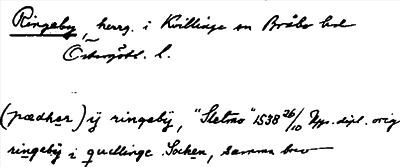 Ringeby, herrg. i Kvillinge sn Bråbo hd
Östergötl. l.
(pædher) ij ringebÿ, "Sletmo" 1538 26/10 Upps. dipl. orig
ringebÿ i quellinge Socken, samma brev